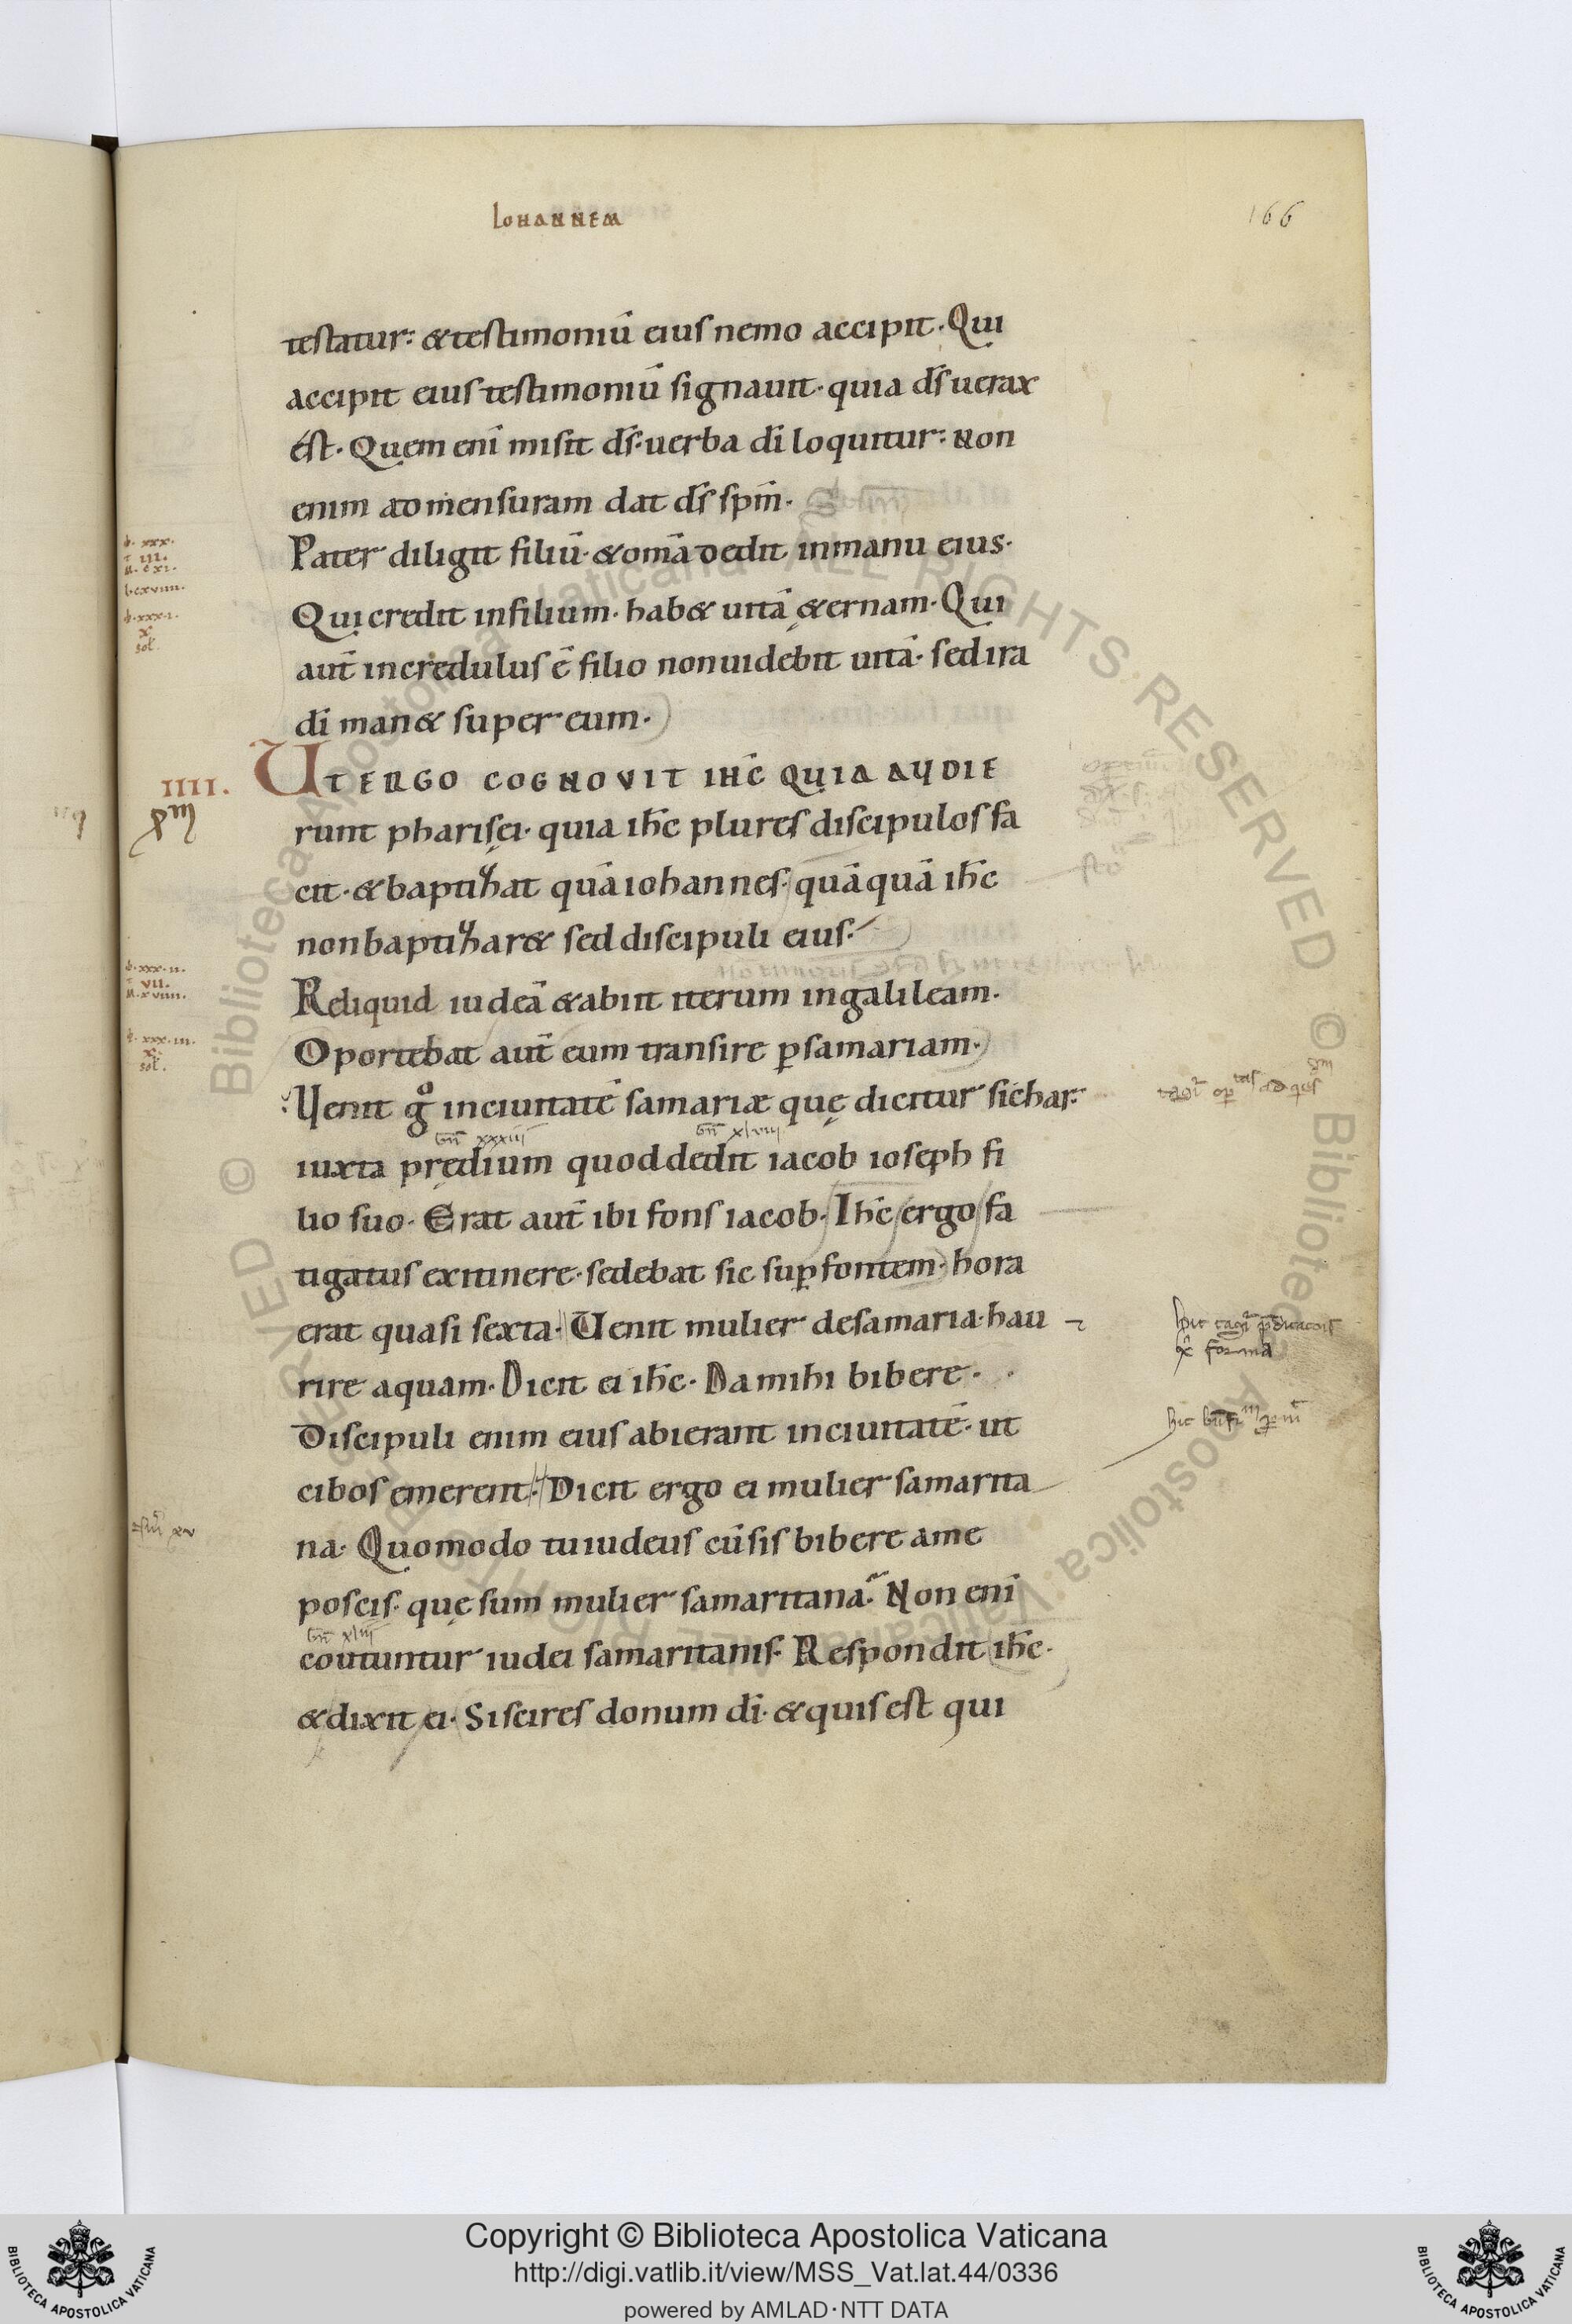 IOHANNEM
166
testatur: & testimoniū eius nemo accipit. Qui
accipit eius testimoniū signauit. quia d̄s uerax
ést. Quem enī misit d̄s. uerba dī loquitur: Non
enim ad mensuram dat d̄s sp̄m.
Pater diligit filiū. & om̄a dedit in manu eius.
Qui credit in filium. hab& uitā &ernam. Qui
aut̄ incredulus ē filio non uidebit uitā. sed ira
dī man& super eum.
IIII. UT ERGO COGNOVIT IHC̄ QUIA AUDIE
runt pharisęi. quia ih̄c plures discipulos fa
cit. & baptizat quā iohannes. quāquā ih̄c
non baptizar& sed discipuli eius.
Reliquid iudeā & abiit iterum in galileam.
Oportebat aut̄ eum transire p̱ samariam.
Uenit gº in ciuitatē samariæ quę dicitur sichar:
iuxta prędium quod dedit iacob ioseph fi
lio suo. Erat aut̄ ibi fons iacob. Ih̄c ergo fa
tigatus ex itinere. sedebat sic sup̱ fontem. hora
erat quasi sexta. Uenit mulier de samaria. hau
rire aquam. Dicit ei ih̄c. Da mihi bibere.
Discipuli enim eius abierant in ciuitatē. ut
cibos emerent. Dicit ergo ei mulier samarita
na. Quomodo tu iudeus cū sis bibere a me
poscis. quę sum mulier samaritana. Non enī
coutuntur iudei samaritanis. Respondit ih̄c.
& dixit ei. Si scires donum dī. & quis est qui
Copyright © Biblioteca Apostolica Vaticana
http://digi.vatlib.it/view/MSS_Vat.lat.44/0336
powered by AMLAD·NTT DATA